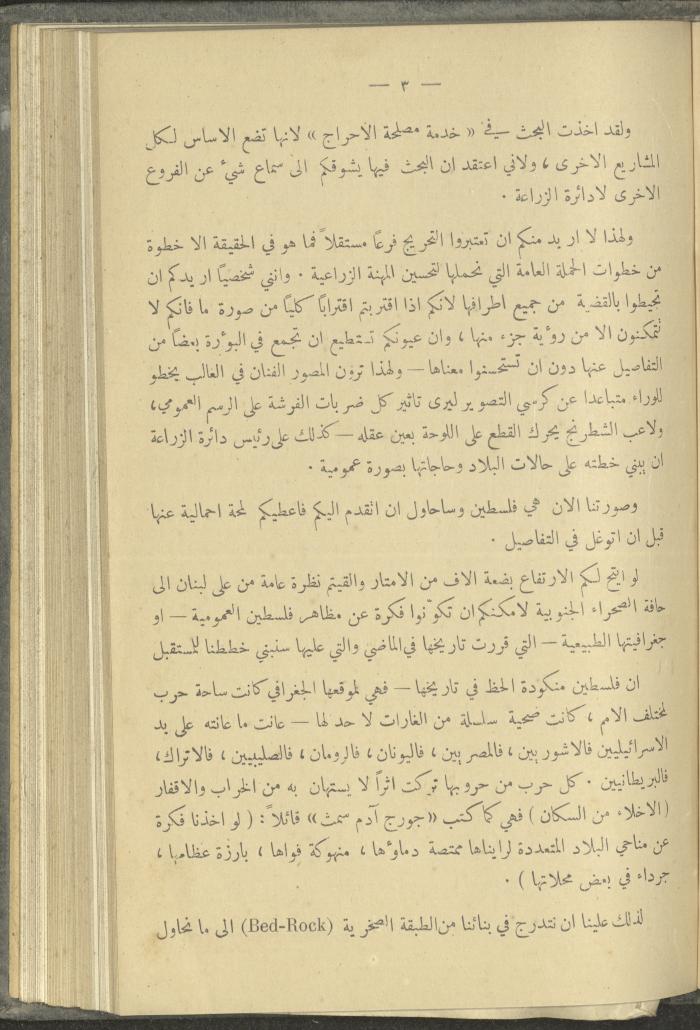 — ٣ —
ولقد اخذت البحث في « خدمة مصلحة الاحراج » لانها تضع الاساس لكل
المشاريع الاخرى ، ولاني اعتقد ان البحث فيها يشوقكم الى سماع شيء عن الفروع
الاخرى لادائرة الزراعة .
ولهذا لا اريد منكم ان تعتبروا التحريج فرعاً مستقلاً فما هو في الحقيقة الا خطوة
من خطوات الحملة العامة التي نحملها لتحسين المهنة الزراعية . وانني شخصياً اريدكم ان
تحيطوا بالقضية من جميع اطرافها لانكم اذا اقتربتم اقتراباً كلياً من صورة ما فانكم لا
تتمكنون الا من رؤية جزء منها ، وان عيونكم تستطيع ان تجمع في البؤرة بعضاً من
التفاصيل عنها دون ان تستحسنوا معناها — ولهذا ترون المصور الفنان في الغالب يخطو
للوراء متباعدا عن كرسي التصوير ليرى تاثير كل ضربات الفرشة على الرسم العمومي،
ولاعب الشطرنج يحرك القطع على اللوحة بعين عقله — كذلك على رئيس دائرة الزراعة
ان يبني خطته على حالات البلاد وحاجاتها بصورة عمومية .
وصورتنا الان هي فلسطين وساحاول ان اتقدم اليكم فاعطيكم لمحة اجمالية عنها
قبل ان اتوغل في التفاصيل .
لو اتيح لكم الارتفاع بضعة الاف من الامتار والقيتم نظرة عامة من على لبنان الى
حافة الصحراء الجنوبية لامكنكم ان تكوّنوا فكرة عن مظاهر فلسطين العمومية — او
جغرافيتها الطبيعية — التي قررت تاريخها في الماضي والتي عليها سنبني خططنا للمستقبل
ان فلسطين منكودة الحظ في تاريخها — فهي لموقعها الجغرافي كانت ساحة حرب
لمختلف الامم ، كانت ضحية سلسلة من الغارات لا حد لها — عانت ما عانته على يد
الاسرائيليين فالاشوريين ، فالمصريين ، فاليونان ، فالرومان ، فالصليبيين ، فالاتراك،
فالبريطانيين . كل حرب من حروبها تركت اثراً لا يستهان به من الخراب والاقفار
(الاخلاء من السكان ) فهي كما كتب «جورج آدم سمث» قائلاً : ( لو اخذنا فكرة
عن مناحي البلاد المتعددة لرايناها ممتصة دماؤها ، منهوكة قواها ، بارزة عظامها ،
جرداء في بعض محلاتها ) .
لذلك علينا ان نتدرج في بنائنا من الطبقة الصخرية (Bed-Rock) الى ما نحاول